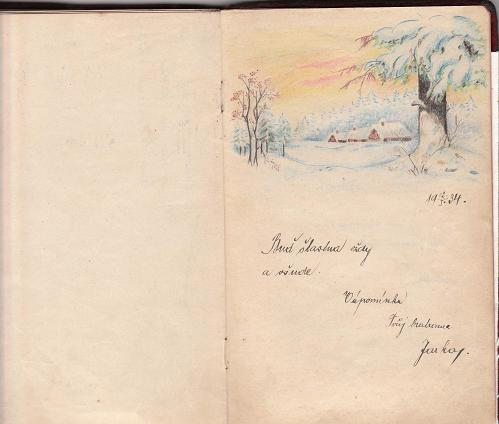 19 2/3 34.
Buď šťastna vždy
a všude.
Vzpomínka
Tvůj bratranec